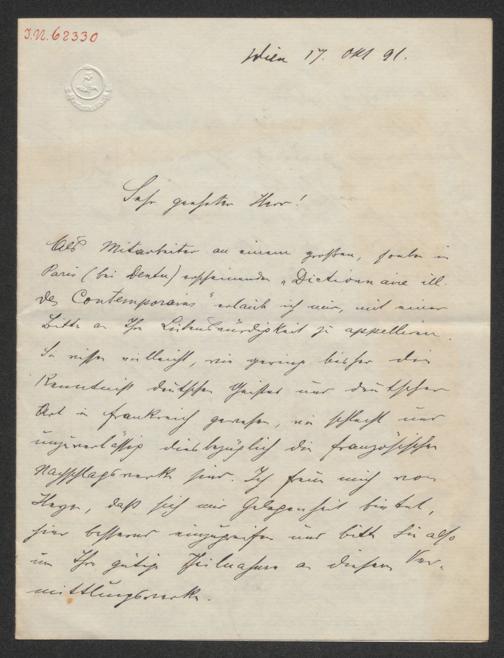 I.N. 62330
Wien 17. Okt 91.
Sehr geehrter Herr!
Als Mitarbeiter an einem großen, soeben in
Paris (bei Dentu) erscheinenden „Dictionnaire ill.
des Contemporains“ erlaube ich mir, mit einer
Bitte an Ihre Liebenswürdigkeit zu appelliren.
Sie wissen vielleicht, wie gering bisher die
Kenntniß deutschen Geistes und deutscher
Art in Frankreich gewesen, wie schlecht und
unzuverlässig diesbezüglich die französischen
Nachschlagewerke sind. Ich freue mich von
Herzen, daß sich mir Gelegenheit bietet,
hier bessernd einzugreifen und bitte Sie also
um Ihre gütige Theilnahme an diesem Ver-
mittlungswerke.